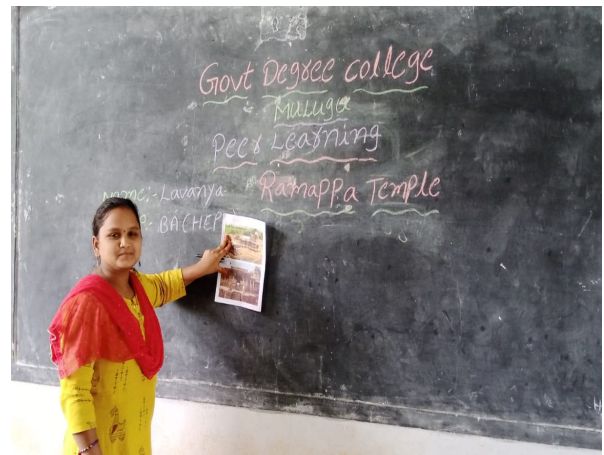 Govt Degree college
Mulugu
Peer Learning
Ramappa Temple
Name:- Lavanya
:- BA(HEP)